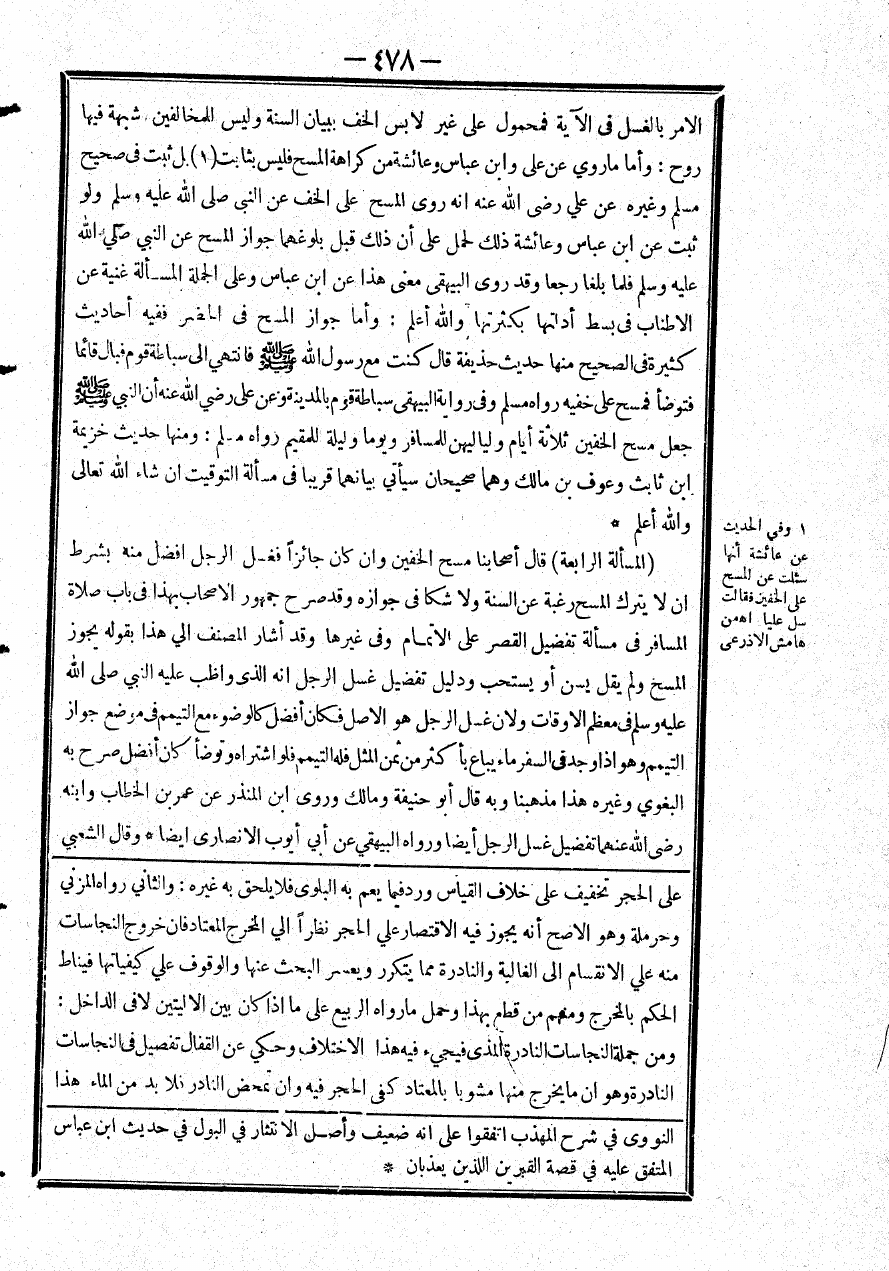 — ٤٧٨ —
الامر بالغسل فى الآية فمحمول على غير لابس الخف ببيان السنة وليس للمخالفين شبهة فيها
روح : وأما ماروي عن على وابن عباس وعائشة من كراهة المسح فليس بثابت (١) بل ثبت فى صحيح
مسلم وغيره عن علي رضى الله عنه انه روى المسح على الخف عن النبى صلى الله عليه وسلم ولو
ثبت عن ابن عباس وعائشة ذلك لحمل على أن ذلك قبل بلوغهما جواز المسح عن النبي صلى الله
عليه وسلم فلما بلغا رجعا وقد روى البيهقى معنى هذا عن ابن عباس وعلى الجملة المسألة غنية عن
الاطناب فى بسط أدلتها بكثرتها والله أعلم : وأما جواز المسح فى الحضر ففيه أحاديث
كثيرة فى الصحيح منها حديث حذيفة قال كنت مع رسول الله ﷺ فانتهي الى سباطة قوم فبال قائما
فتوضأ فمسح على خفيه رواه مسلم وفى رواية البيهقى سباطة قوم بالمدينة وعن على رضي الله عنه أن النبي ﷺ
جعل مسح الخفين ثلاثة أيام ولياليهن للمسافر ويوما وليلة للمقيم رواه مسلم : ومنها حديث خزيمة
ابن ثابت وعوف بن مالك وهما صحيحان سيأتي بيانهما قريبا فى مسألة التوقيت ان شاء الله تعالى
والله أعلم *
(المسألة الرابعة) قال أصحابنا مسح الخفين وان كان جائزاً فغسل الرجل افضل منه بشرط
ان لا يترك المسح رغبة عن السنة ولا شكا فى جوازه وقد صرح جمهور الاصحاب بهذا فى باب صلاة
المسافر فى مسألة تفضيل القصر على الاتمام وفى غيرها وقد أشار المصنف الي هذا بقوله يجوز
المسح ولم يقل يسن أو يستحب ودليل تفضيل غسل الرجل انه الذى واظب عليه النبي صلى الله
عليه وسلم فى معظم الاوقات ولان غسل الرجل هو الاصل فكان أفضل كالوضوء مع التيمم فى موضع جواز
التيمم وهو اذا وجد فى السفر ماء يباع بأكثر من ثمن المثل فله التيمم فلو اشتراه وتوضأ كان أفضل صرح به
البغوي وغيره هذا مذهبنا وبه قال أبو حنيفة ومالك وروى ابن المنذر عن عمر بن الخطاب وابنه
رضى الله عنهما تفضيل غسل الرجل أيضا ورواه البيهقي عن أبي أيوب الانصارى ايضا * وقال الشعبي
على الحجر تخفيف على خلاف القياس ورد فيما يعم به البلوى فلا يلحق به غيره : والثاني رواه المزني
وحرملة وهو الاصح أنه يجوز فيه الاقتصار علي الحجر نظراً الي المخرج المعتاد فان خروج النجاسات
منه علي الانقسام الى الغالبة والنادرة مما يتكرر ويعسر البحث عنها والوقوف علي كيفياتها فيناط
الحكم بالمخرج ومنهم من قطع بهذا وحمل مارواه الربيع على ما اذا كان بين الاليتين لافى الداخل :
ومن جملة النجاسات النادرة المذى فيجيء فيه هذا الاختلاف وحكي عن القفال تفصيل فى النجاسات
النادرة وهو ان مايخرج منها مشوبا بالمعتاد كفى الحجر فيه وان تمحض النادر فلا بد من الماء هذا
النووى في شرح المهذب اتفقوا على انه ضعيف وأصل الانتثار في البول في حديث ابن عباس
المتفق عليه في قصة القبرين اللذين يعذبان *
١ وفي الحديث
عن عائشة أنها
سئلت عن المسح
على الخفين فقالت
سل عليا اهمن
هامش الاذرعى